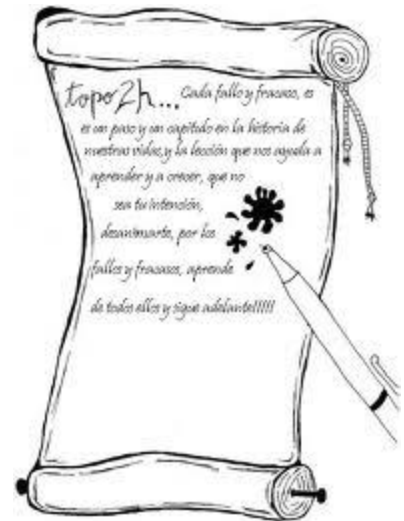 topo2h... Cada fallo y fracaso, es
es un paso y un capitulo en la historia de
nuestras vidas,y la lección que nos ayuda a
aprender y a crecer, que no
sea tu intención,
desanimarte, por los
fallos y fracasos, aprende
de todos ellos y sigue adelante!!!!!